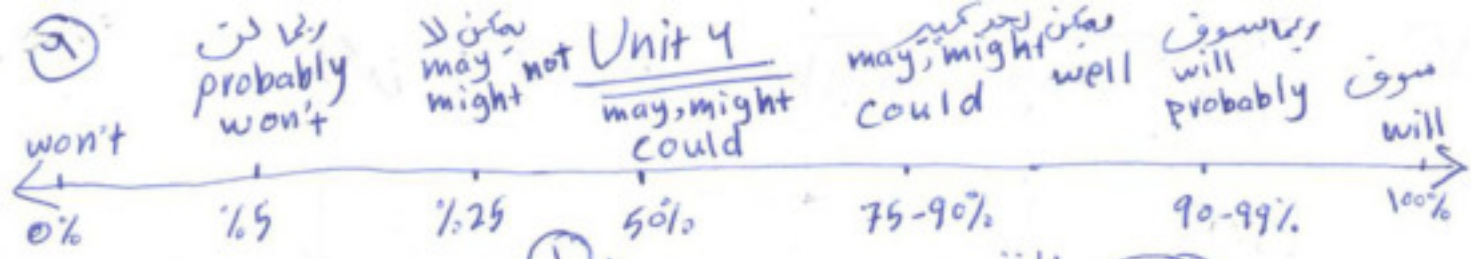 ٩
won't
ربما لن
probably
won't
يمكن لا
may
might not
Unit 4
may, might
could
يمكن بحد كبير
may, might well
could
ربما سوف
will
probably
سوف
will
0% %5 %25 50% 75-90% 90-99% 100%